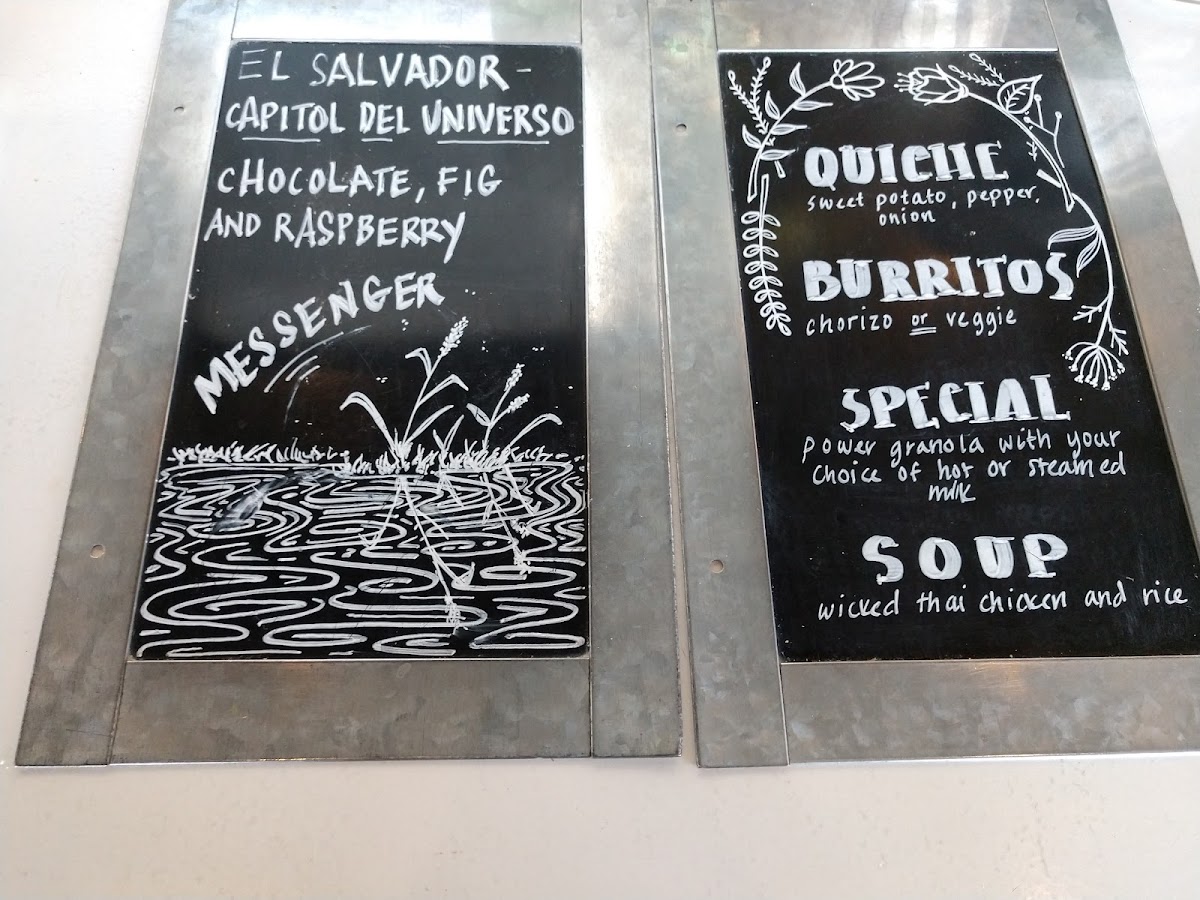 EL SALVADOR -
CAPITOL DEL UNIVERSO
CHOCOLATE, FIG
AND RASPBERRY
MESSENGER
QUICHE
sweet potato, pepper,
onion
BURRITOS
chorizo or veggie
SPECIAL
power granola with your
choice of hot or steamed
milk
SOUP
wicked thai chicken and rice